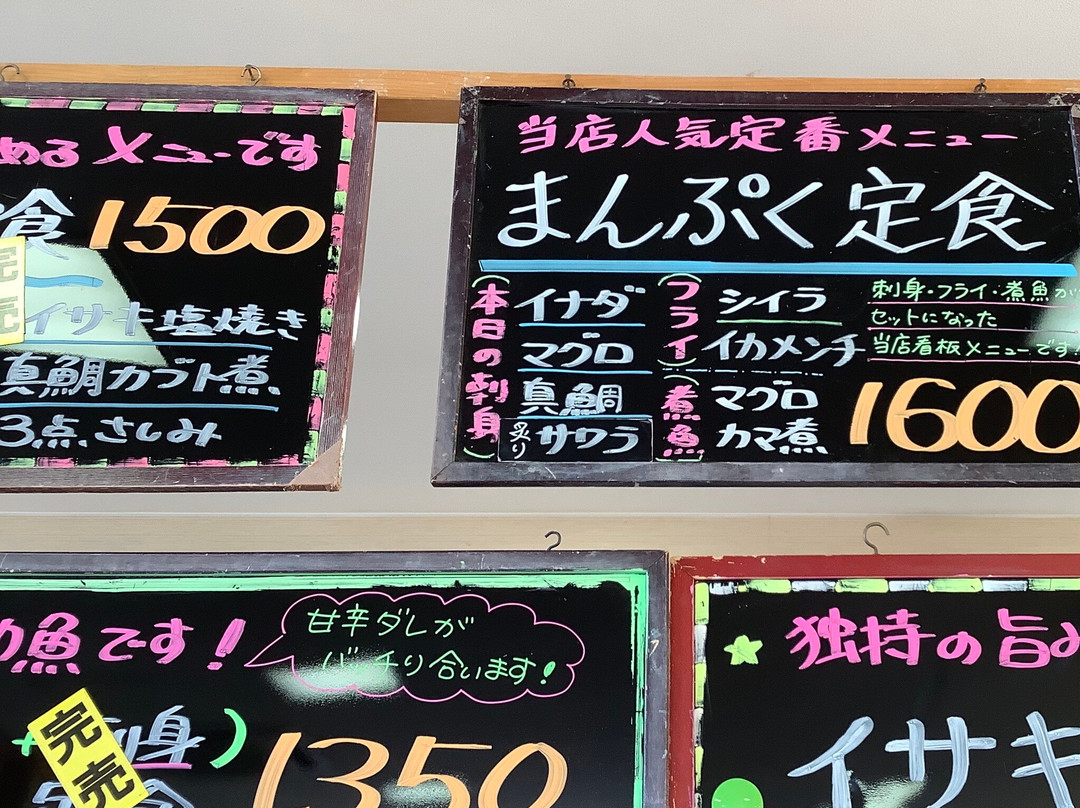 める メニューです
食 1500
完売
イサキ塩焼き
真鯛カブト煮
3点さしみ
当店人気定番メニュー
まんぷく定食
(本日の刺身)
イナダ
マグロ
真鯛
炙り サワラ
(フライ)
シイラ
イカメンチ
(煮魚)
マグロ
カマ煮
刺身・フライ・煮魚が
セットになった
当店看板メニューです!
1600
魚です!
甘辛ダレが
バッチリ合います!
刺身)
完売
1350
独持の旨み
イサキ